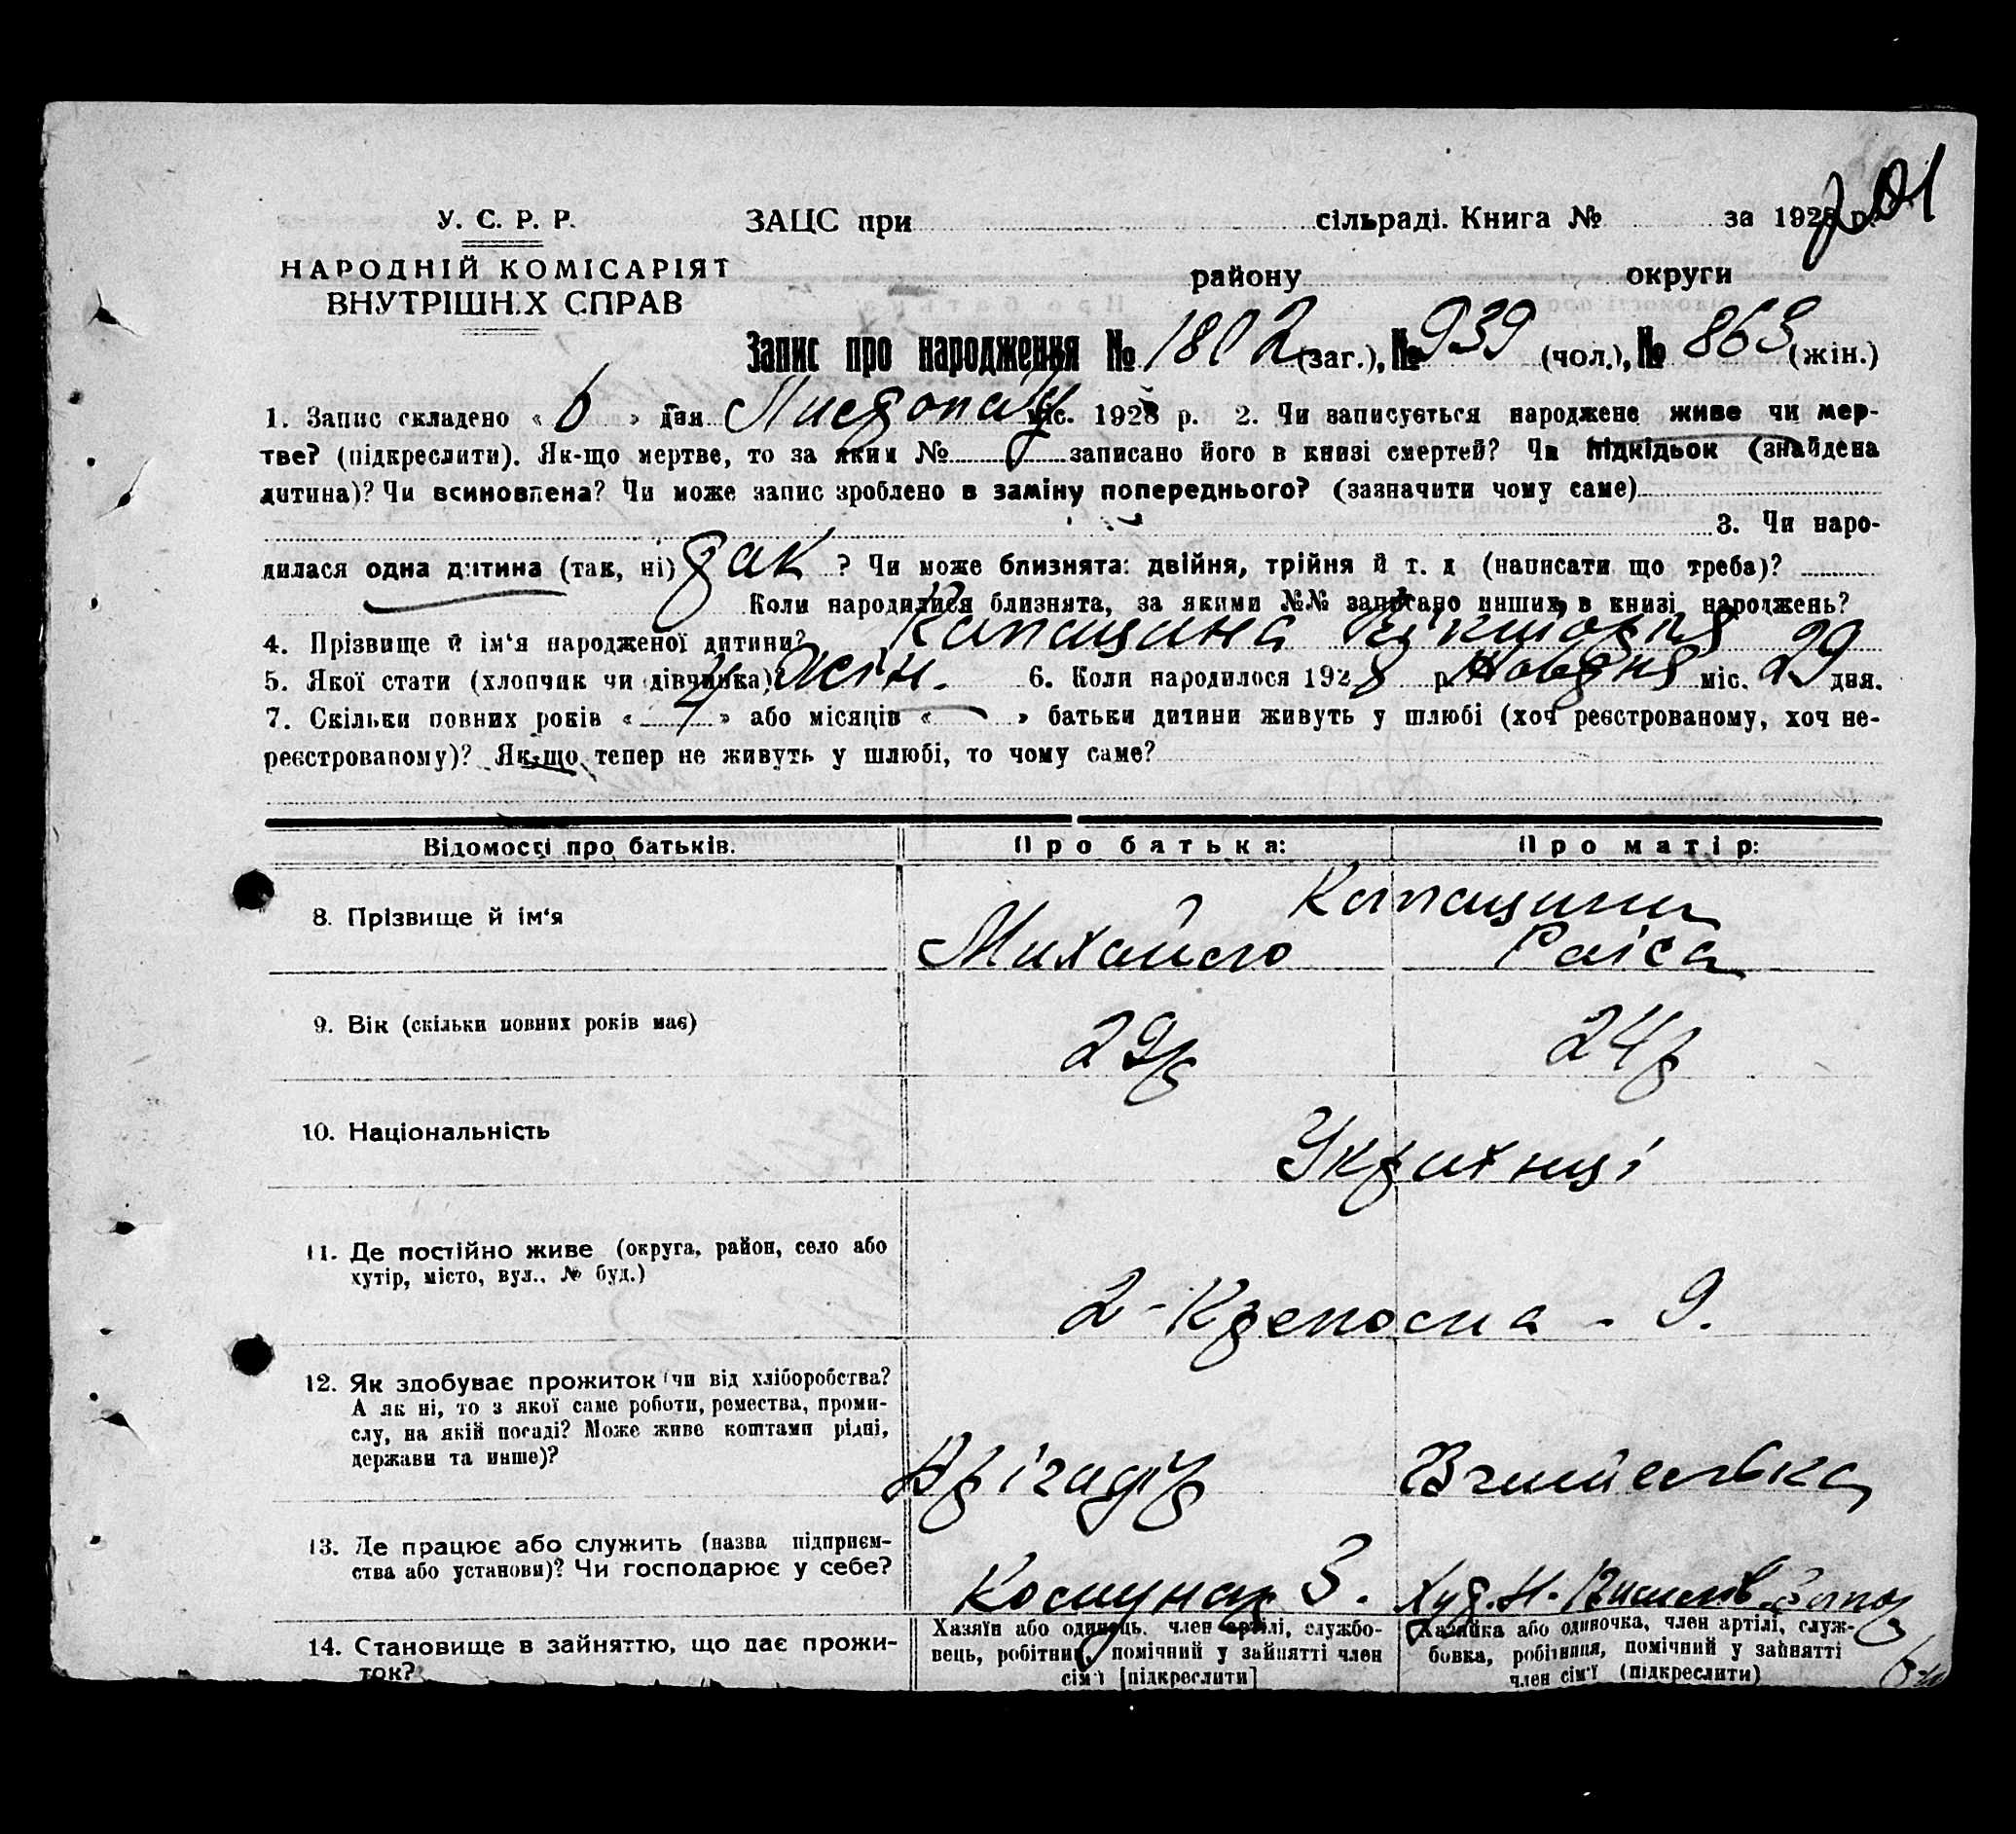 201
У. С. Р. Р. ЗАЦС при сільраді. Книга № за 1928 р.
НАРОДНІЙ КОМІСАРІЯТ району округи
ВНУТРІШНІХ СПРАВ
Запис про народження № 1802 (заг.), № 939 (чол.), № 863 (жін.)
1. Запис складено « 6 » дня Листопаду міс. 1928 р. 2. Чи записується народжене живе чи мер-
тве? (підкреслити). Як-що мертве, то за яким № записано його в книзі смертей? Чи підкідьок (знайдена
дитина)? Чи всиновлена? Чи може запис зроблено в заміну попереднього? (зазначити чому саме)
3. Чи наро-
дилася одна дитина (так, ні) так ? Чи може близнята: двійня, трійня й т. д (написати що треба)?
Коли народилися близнята, за якими №№ записано инших в книзі народжень?
4. Прізвище й ім‘я народженої дитини?
5. Якої стати (хлопчик чи дівчинка)? Жін. 6. Коли народилося 1928 р. міс. 29 дня.
7. Скільки повних років « 4 » або місяців « — » батьки дитини живуть у шлюбі (хоч реєстрованому, хоч не-
реєстрованому)? Як-що тепер не живуть у шлюбі, то чому саме?
Відомості про батьків. Про батька: Про матір:
8. Прізвище й ім‘я
Михайло Раіса
9. Вік (скільки повних років має) 29р 24р
10. Національність Українці
11. Де постійно живе (округа, район, село або
хутір, місто, вул., № буд.)
2-Крепосна - 9.
12. Як здобуває прожиток (чи від хліборобства?
А як ні, то з якої саме роботи, ремества, проми-
слу, на якій посаді? Може живе коштами рідні,
держави та инше)?
Брігадір Вчителька
13. Де працює або служить (назва підприєм-
ства або установи)? Чи господарює у себе?
Комунар З.
14. Становище в зайняттю, що дає прожи-
ток?
Хазяїн або одинець, член артілі, службо-
вець, робітник, помічний у зайнятті член
сім‘ї [підкреслити]
Хазяйка або одиночка, член артілі, служ-
бовка, робітниця, помічний у зайнятті
член сім‘ї (підкреслити)